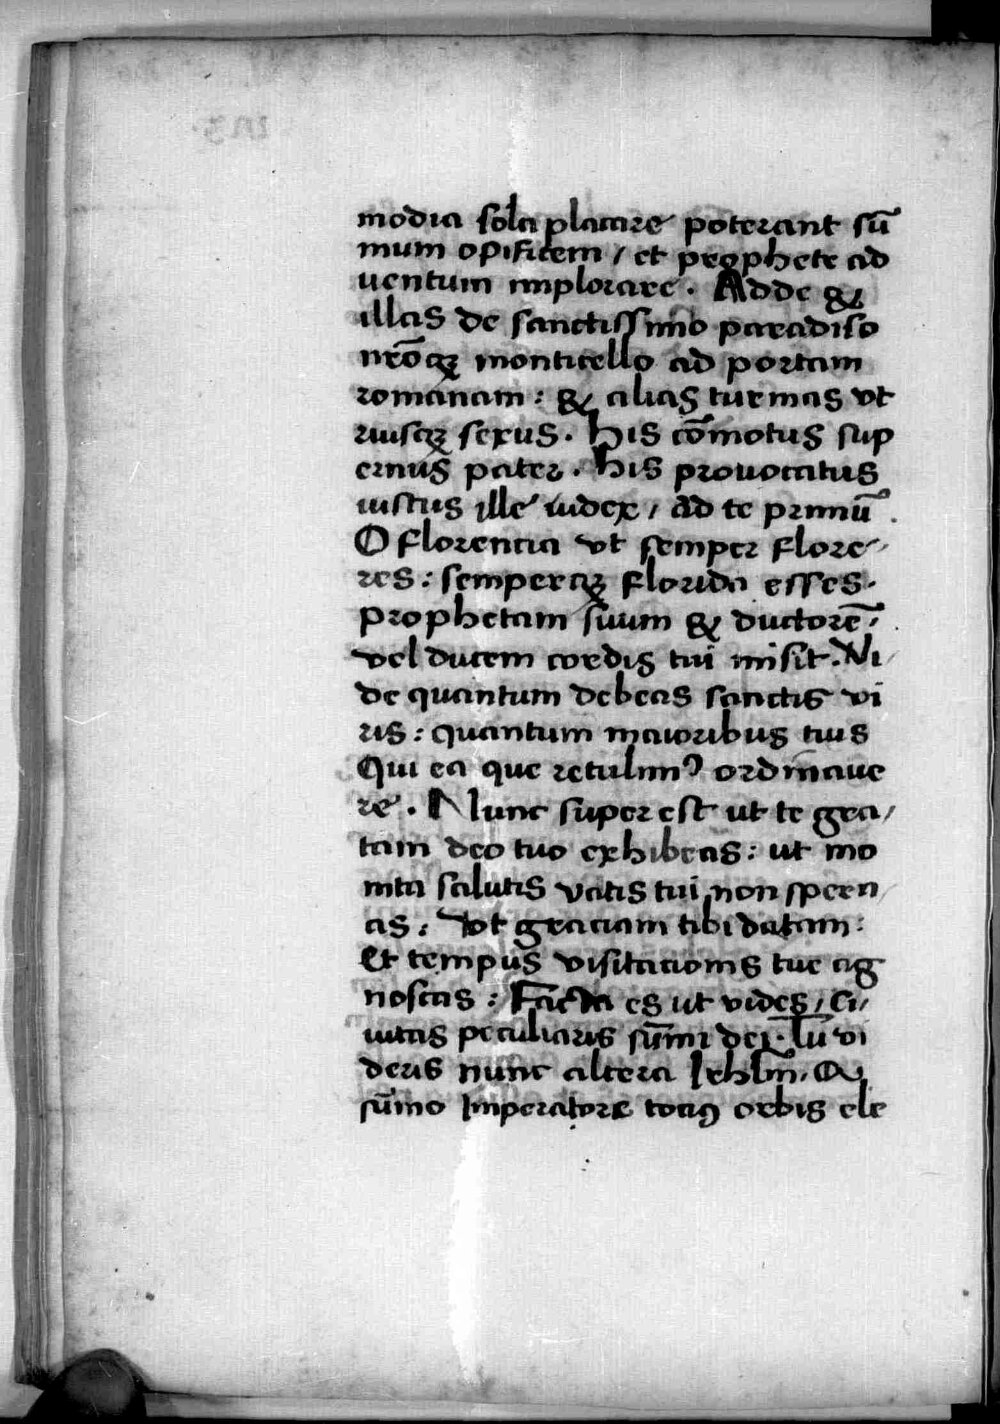 modia sola placare poterant sū
mum opificem / et prophete ad
uentum implorare . Adde &
illas de sanctissimo paradiso
nrōqȝ monticello ad portam
romanam : & alias turmas vt
riusqȝ sexus . his cōmotus sup
ernus pater . his prouocatus
iustus ille iudex / ad te primū .
O florencia vt semper flore-
res : semperqȝ florida esses .
prophetam suum & ductorē /
vel ducem cordis tui misit . Vi/
de quantum debeas sanctis vi
ris : quantum maioribus tuis
Qui ea que retulimꝰ ordinaue
re . Nunc superest ut te gra/
tam deo tuo exhibeas : ut mo
nita salutis vatis tui non spern/
as : vt graciam tibi datam :
Et tempus visitacionis tue cog
noscas : Facta es ut vides / Ci/
uitas peculiaris sūmi dei . Tu vi
deris nunc altera Ierhlm̄ . Q
sūmo Imperatore tociꝰ orbis ele